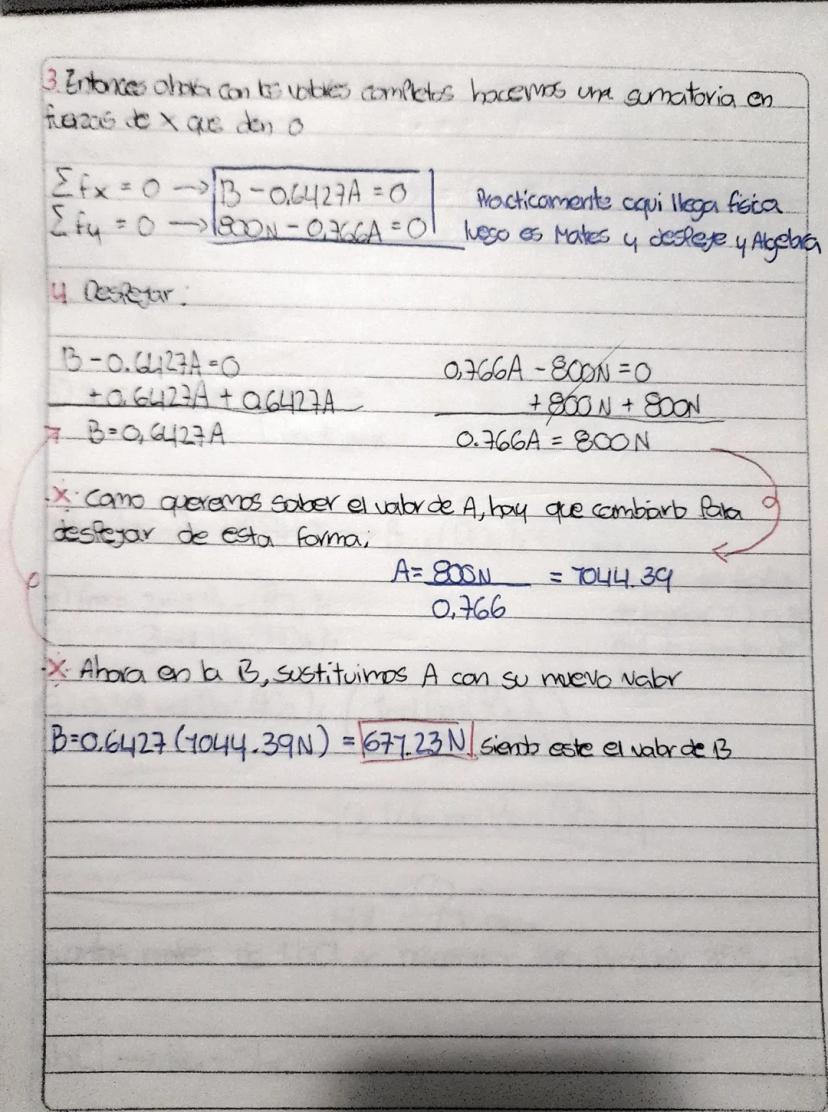 3. Entonces ahora con los valores completos hacemos una sumatoria en
fuerzas de x que den 0
Σfx = 0 → B - 0,6427A = 0
Σfy = 0 → 800N - 0,766A = 0
Practicamente aqui llega fisica
luego es Mates y despeje y Algebra
4 Despejar:
B - 0.6427A = 0
+ 0.6427A + 0.6427A
B = 0,6427A
0,766A - 800N = 0
+ 800N + 800N
0.766A = 800N
·x· Como queremos saber el valor de A, hay que cambiarlo para
despejar de esta forma;
A = 800N = 1044.39
0,766
·x· Ahora en la B, sustituimos A con su nuevo valor
B = 0.6427 (1044.39N) = 671.23N siento este el valor de B